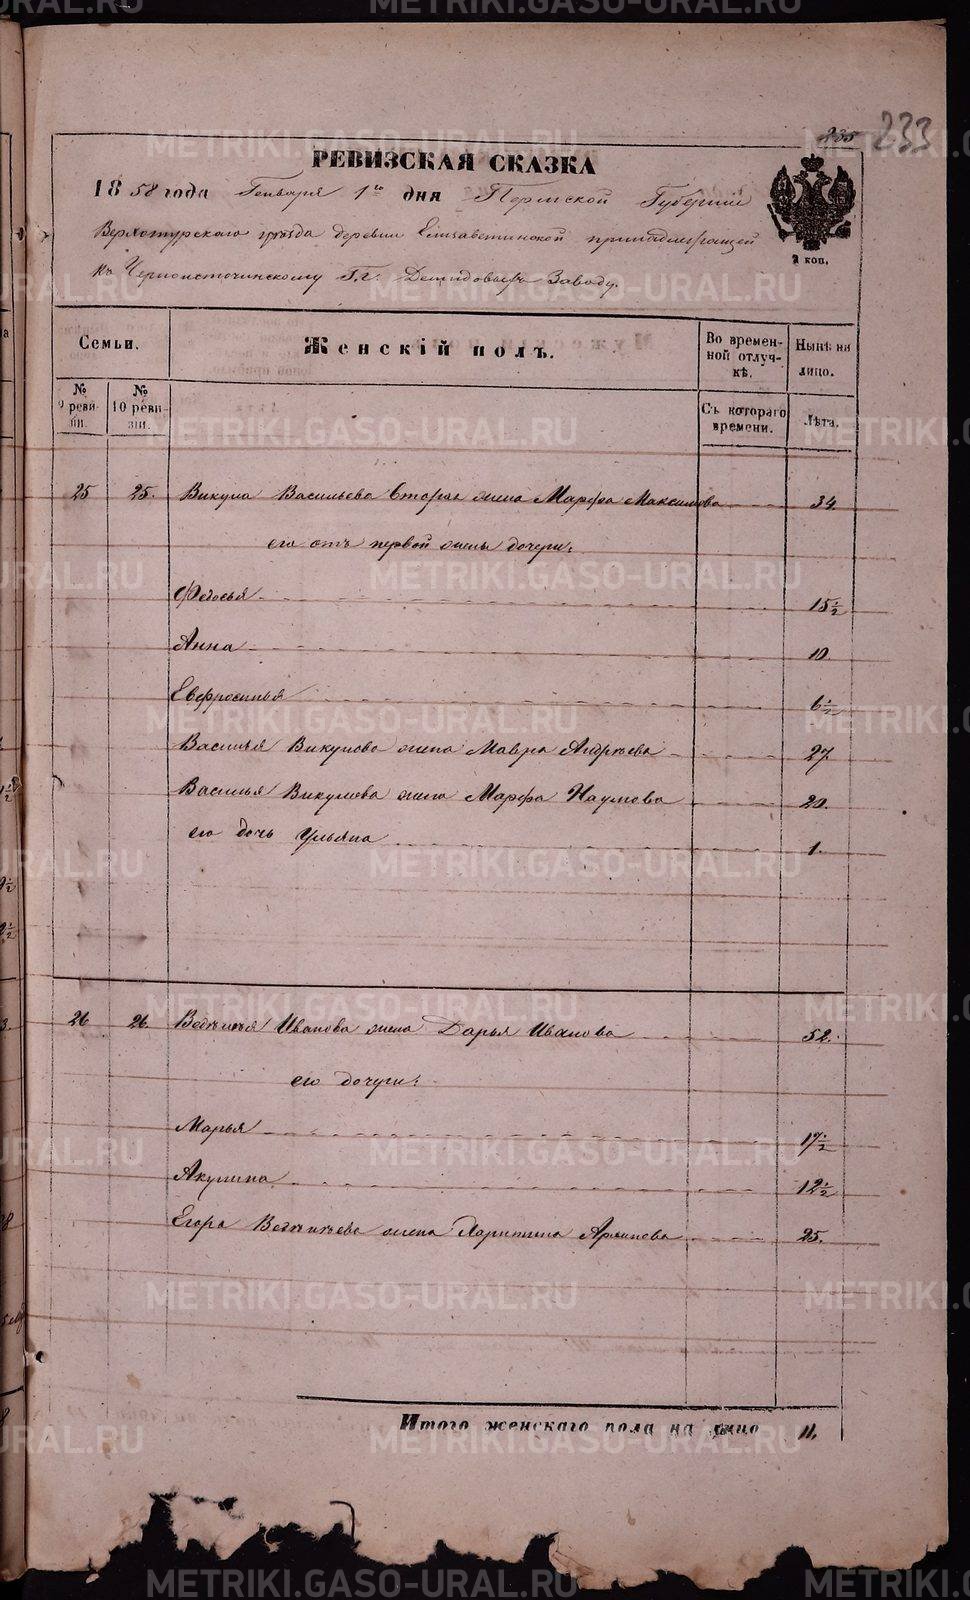 METRIKI.GASO-URAL.RU
235 233
РЕВИЗСКАЯ СКАЗКА
1858 года Генваря 1го дня Пермской Губернии
Верхотурского уѣзда деревни Елизаветинской принадлежащей
къ Черноисточинскому Гг. Демидовыхъ Заводу.
2 коп.
Семьи.
Женскій полъ.
Во времен-
ной отлуч-
кѣ.
Нынѣ на
лицо.
№
9 реви-
зіи.
№
10 реви-
зіи.
Съ котораго
времени.
Лѣта.
25 25. Викула Васильева вторая жена Марфа Максимова 34
его отъ первой жены дочери:
Федосья 15½
Анна 10
Евфросинья 6½
Василья Викулова жена Мавра Андреева 27
Василья Викулова жена Марфа Наумова 20.
его дочь Ульяна 1.
26 26. Иванова жена Дарья Иванова 52.
его дочери:
Марья 17½
Акулина 12½
Егора жена Харитина Архипова 25.
Итого женскаго пола на лицо 11.